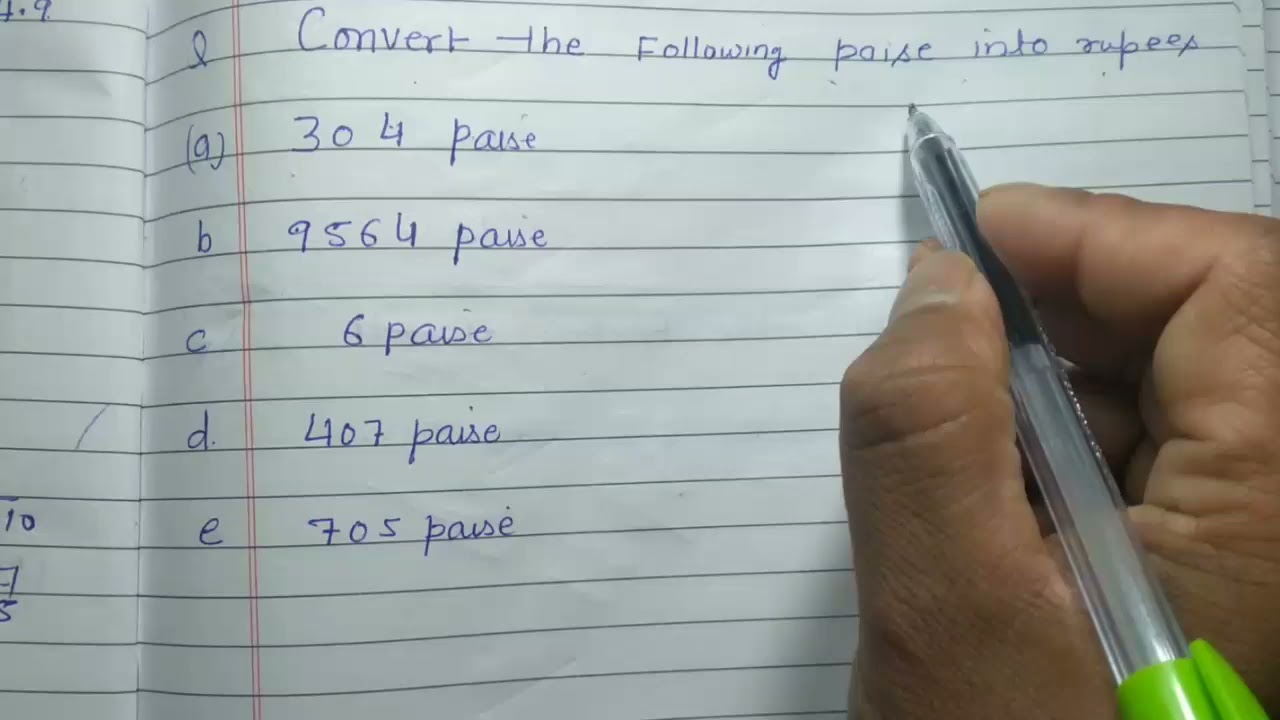 4.9
Q Convert the Following paise into rupees
(a) 304 paise
b 9564 paise
c 6 paise
d. 407 paise
e 705 paise
10
5